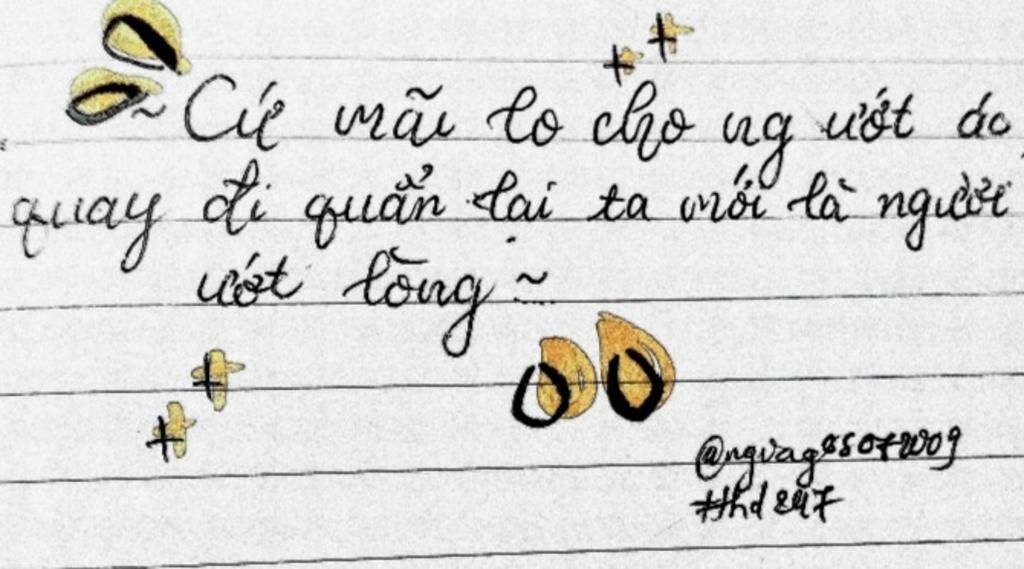 ~ Cứ mãi lo cho ng ướt áo,
quay đi quẩn lại ta mới là người
ướt lòng ~
#thd247